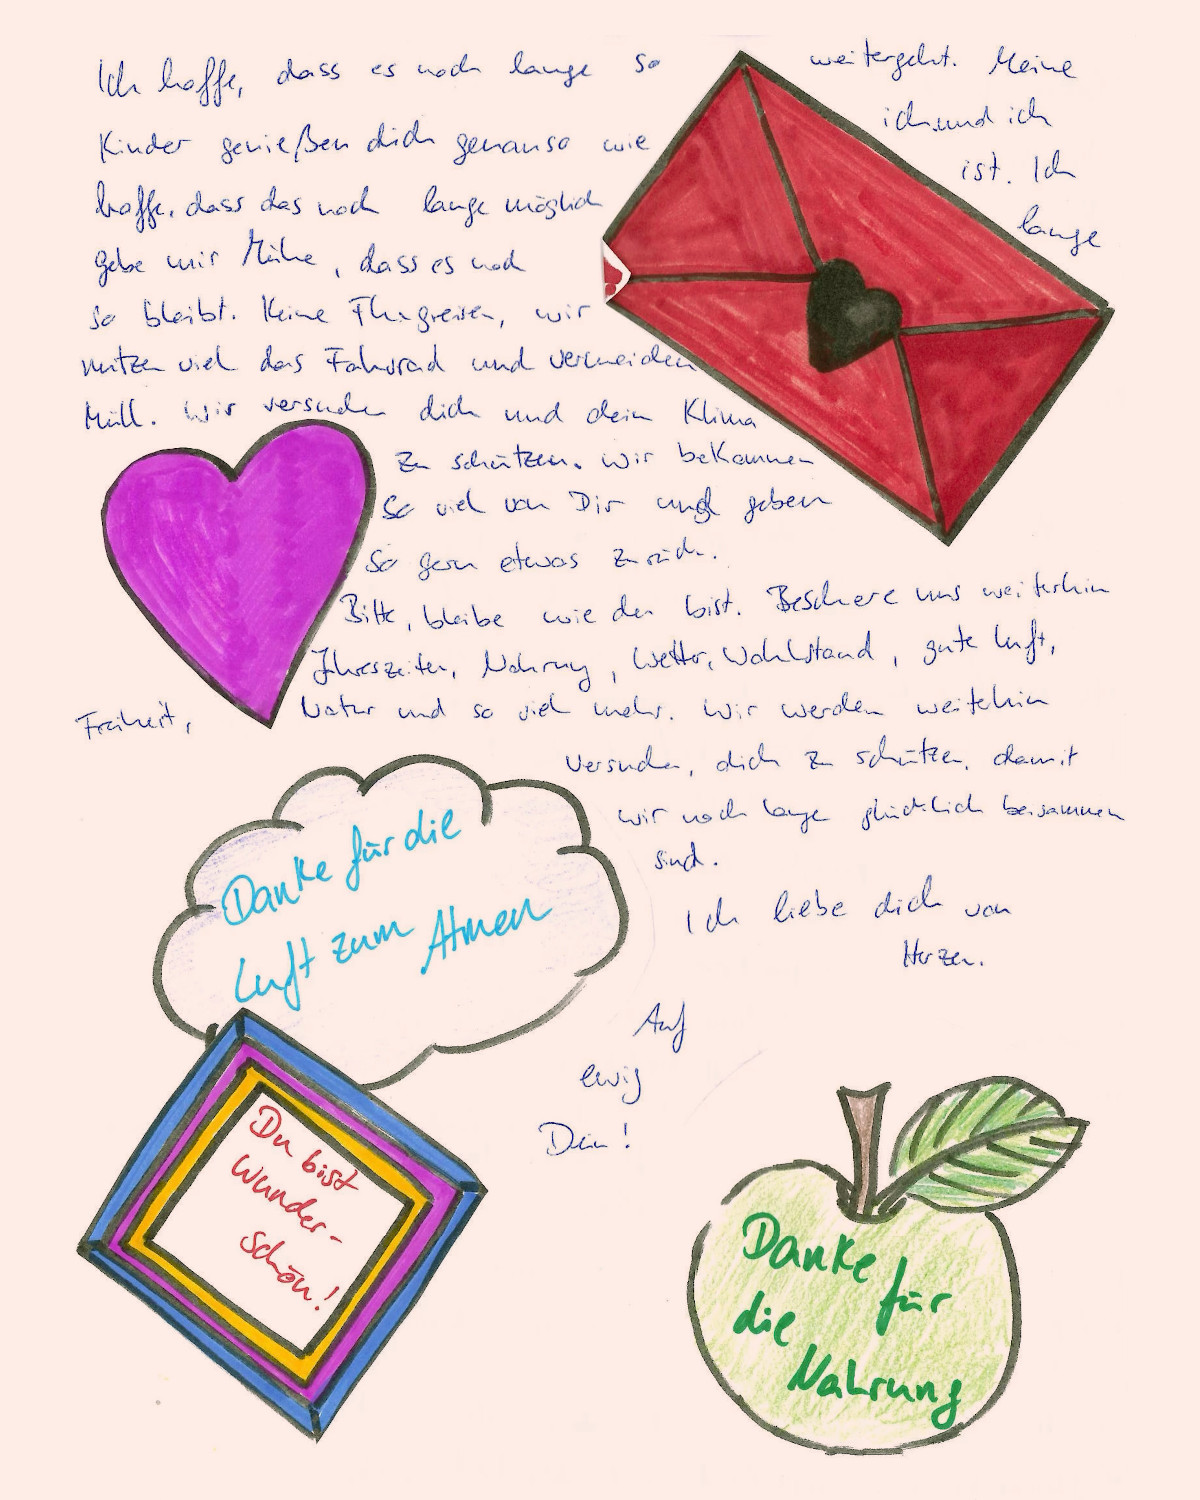 Ich hoffe, dass es noch lange so weitergeht. Meine
Kinder genießen dich genauso wie ich und ich
hoffe, dass das noch lange möglich ist. Ich
gebe mir Mühe, dass es noch lange
so bleibt. Keine Flugreisen, wir
nutzen viel das Fahrrad und vermeiden
Müll. Wir versuchen dich und dein Klima
zu schützen. Wir bekommen
so viel von Dir und geben
so gern etwas zurück.
Bitte, bleibe wie du bist. Beschere uns weiterhin
Jahreszeiten, Nahrung, Wetter, Wohlstand, gute Luft,
Freiheit, Natur und so viel mehr. Wir werden weiterhin
versuchen, dich zu schützen, damit
wir noch lange glücklich beisammen
sind.
Ich liebe dich von
Herzen.
Auf
ewig
Dein!
Danke für die
Luft zum Atmen
Du bist
Wunder-
schön!
Danke
für
die
Nahrung